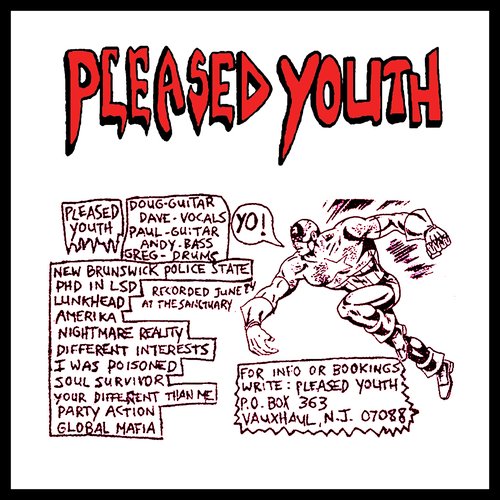 PLEASED YOUTH
PLEASED
YOUTH
DOUG-GUITAR
DAVE-VOCALS
PAUL-GUITAR
ANDY-BASS
GREG-DRUMS
YO!
NEW BRUNSWICK POLICE STATE
PHD IN LSD
LUNKHEAD
AMERIKA
NIGHTMARE REALITY
DIFFERENT INTERESTS
I WAS POISONED
SOUL SURVIVOR
YOUR DIFFERENT THAN ME
PARTY ACTION
GLOBAL MAFIA
RECORDED JUNE 84
AT THE SANCTUARY
FOR INFO OR BOOKINGS
WRITE: PLEASED YOUTH
P.O. BOX 363
VAUXHAUL, N.J. 07088